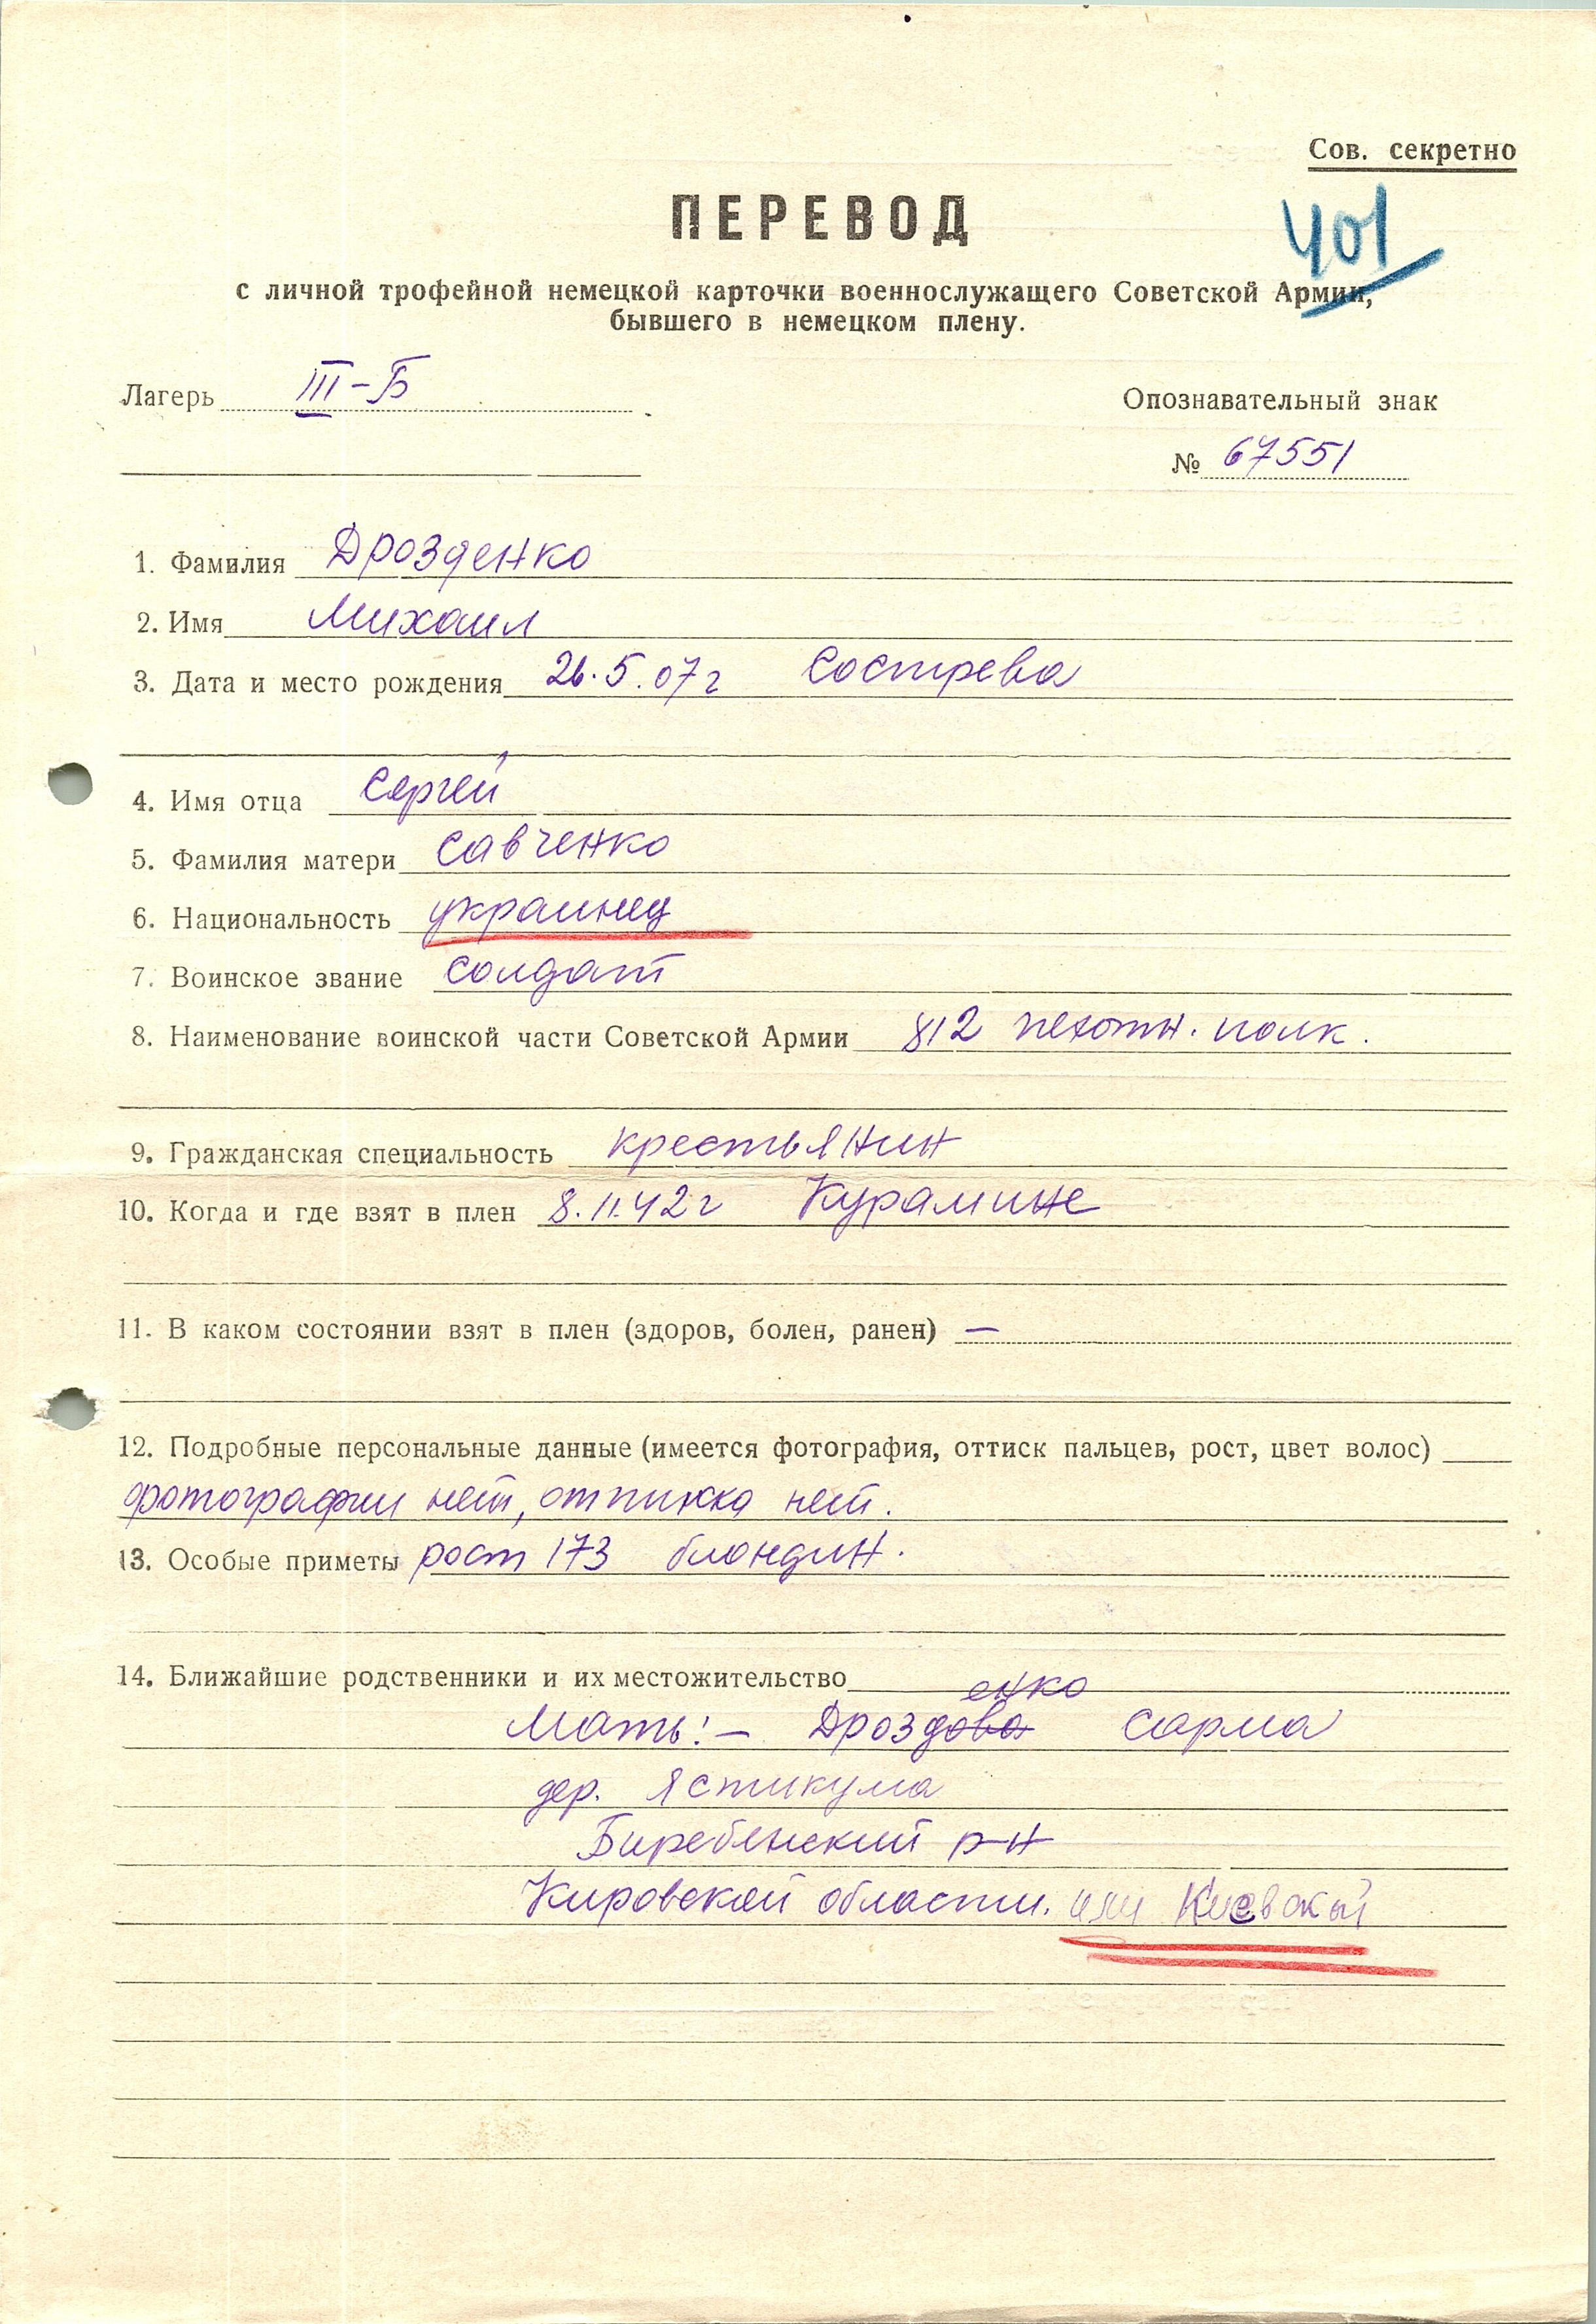 Сов. секретно
ПЕРЕВОД
401
с личной трофейной немецкой карточки военнослужащего Советской Армии,
бывшего в немецком плену.
Лагерь III-Б
Опознавательный знак
№ 67551
1. Фамилия Дрозденко
2. Имя Михаил
3. Дата и место рождения 26.5.07г Сострева
4. Имя отца Сергей
5. Фамилия матери Савченко
6. Национальность украинец
7. Воинское звание солдат
8. Наименование воинской части Советской Армии 812 пехотн. полк.
9. Гражданская специальность крестьянин
10. Когда и где взят в плен 8.11.42г Курамине
11. В каком состоянии взят в плен (здоров, болен, ранен) —
12. Подробные персональные данные (имеется фотография, оттиск пальцев, рост, цвет волос)
фотографии нет, оттиска нет.
13. Особые приметы рост 173 блондин.
14. Ближайшие родственники и их местожительство
енко
Мать:- Дроздова Сарма
дер. Ястикума
Биребенский р-н
Кировской области. или Киевской